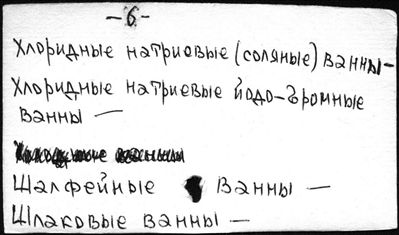 -6-
Хлоридные натриевые (соляные) ванны-
Хлоридные натриевые йодо-бромные
ванны —
Шалфейные ванны —
Шлаковые ванны —